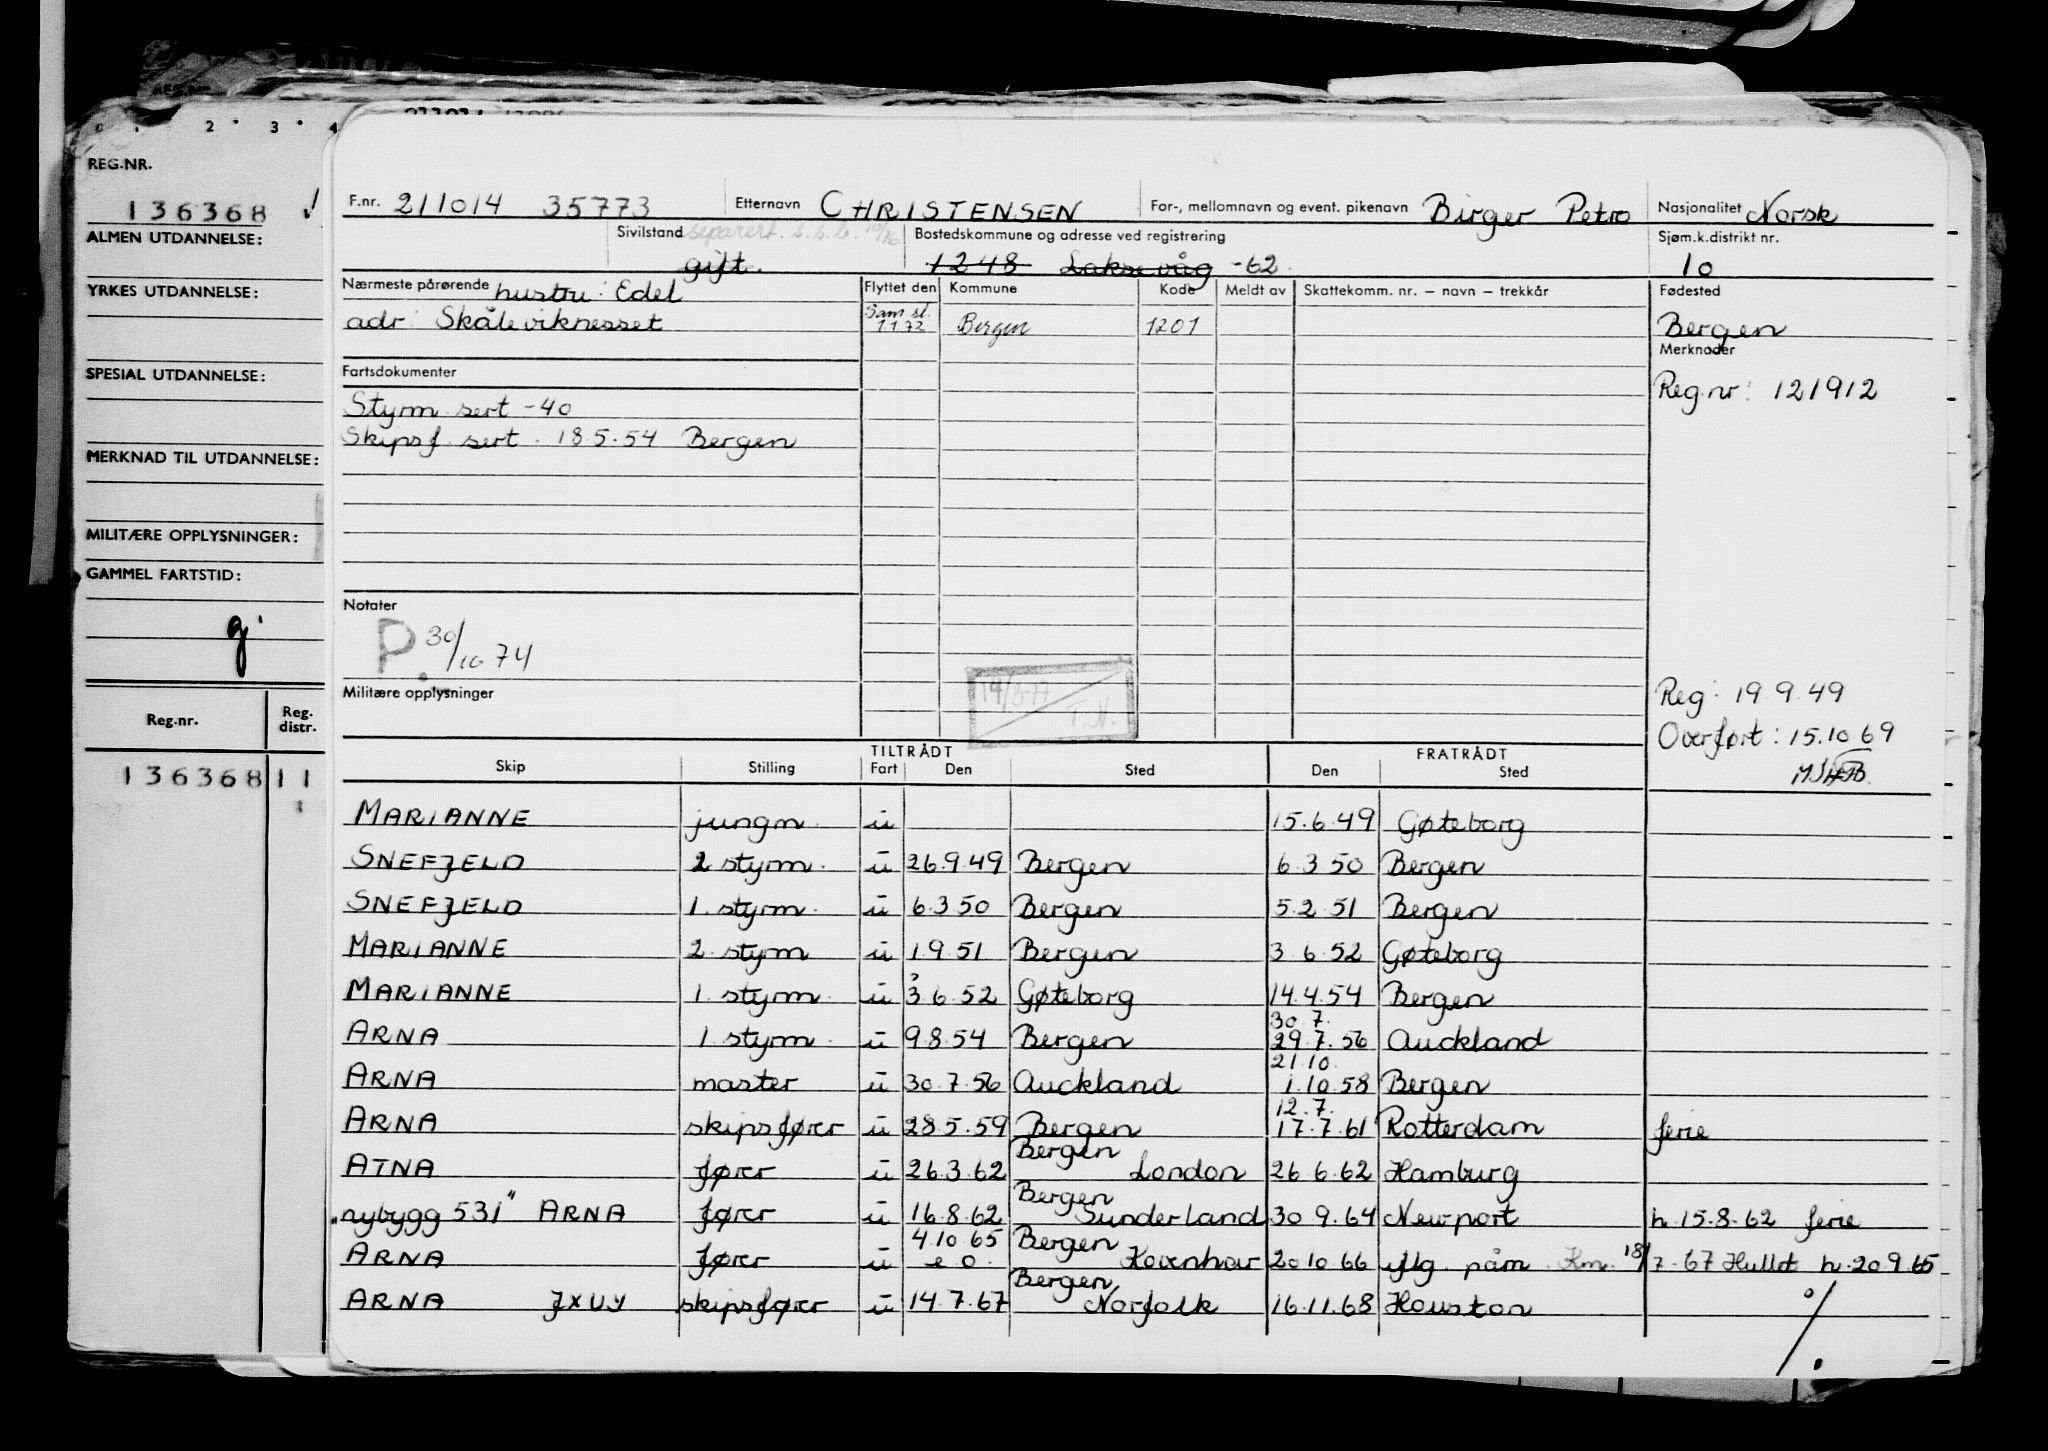 2 3 4
REG.NR.
136368
ALMEN UTDANNELSE:
YRKES UTDANNELSE:
SPESIAL UTDANNELSE:
MERKNAD TIL UTDANNELSE:
MILITÆRE OPPLYSNINGER:
GAMMEL FARTSTID:
g.
Reg.nr. Reg. distr.
136368 11
F.nr. 211014 35773 Etternavn CHRISTENSEN For-, mellomnavn og event. pikenavn Birger Petro Nasjonalitet Norsk
Sivilstand separert. gift. Bostedskommune og adresse ved registrering 1248 Laksevåg -62 Sjøm.k.distrikt nr. 10
Nærmeste pårørende hustru: Edel Flyttet den Kommune Kode Meldt av Skattekomm. nr. – navn – trekkår Fødested
adr: Skåleviknesset Sam.sl. 1.1.72 Bergen 1201 Bergen
Merknader
Fartsdokumenter
Reg.nr: 121912
Styrm. sert -40
Skipsf. sert. 18.5.54 Bergen
Notater
P. 30/10 74
14/3-77 T.N.
Militære opplysninger
Reg: 19.9.49
Overført: 15.10.69
TILTRÅDT FRATRÅDT
Skip Stilling Fart Den Sted Den Sted
MARIANNE jungm. u 15.6.49 Gøteborg
SNEFJELD 2 styrm. u 26.9.49 Bergen 6.3.50 Bergen
SNEFJELD 1. styrm. u 6.3.50 Bergen 5.2.51 Bergen
MARIANNE 2. styrm u 1.9.51 Bergen 3.6.52 Gøteborg
MARIANNE 1. styrm. u 3.6.52 Gøteborg 14.4.54 Bergen
30.7.
ARNA 1. styrm. u 9.8.54 Bergen 29.7.56 Auckland
21.10.
ARNA master u 30.7.56 Auckland 1.10.58 Bergen
12.7.
ARNA skipsfører u 28.5.59 Bergen 17.7.61 Rotterdam ferie
Bergen
ATNA fører u 26.3.62 London 26.6.62 Hamburg
Bergen
"nybygg 531" ARNA fører u 16.8.62 Sunderland 30.9.64 Newport h. 15.8.62 ferie
4.10.65 Bergen
ARNA fører u e.o. 20.10.66 flg. påm. Km. 18/7-67 h. 20.9.65
Bergen
ARNA JXUY skipsfører u 14.7.67 Norfolk 16.11.68 Houston